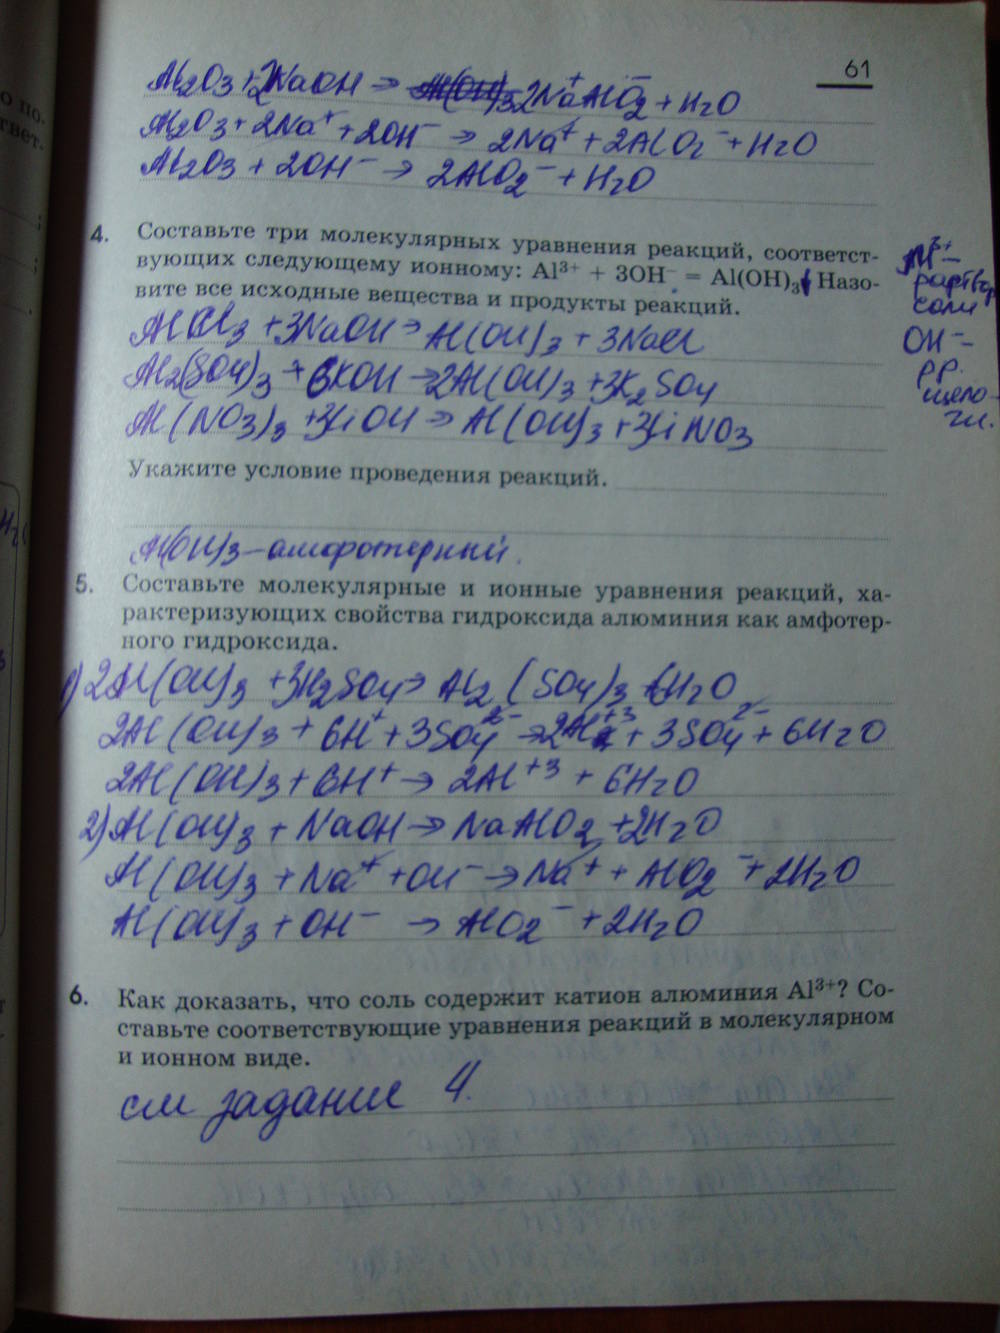 61
Al2O3 + 2NaOH → 2NaAlO2 + H2O
Al2O3 + 2Na⁺ + 2OH⁻ → 2Na⁺ + 2AlO2⁻ + H2O
Al2O3 + 2OH⁻ → 2AlO2⁻ + H2O
о по-
твет.
4. Составьте три молекулярных уравнения реакций, соответст-
вующих следующему ионному: Al³⁺ + 3OH⁻ = Al(OH)₃↓ Назо-
вите все исходные вещества и продукты реакций.
Al³⁺ –
раствор
соли
OH⁻ –
р.р.
щело-
чи.
AlCl3 + 3NaOH → Al(OH)3 + 3NaCl
Al2(SO4)3 + 6KOH → 2Al(OH)3 + 3K2SO4
Al(NO3)3 + 3LiOH → Al(OH)3 + 3LiNO3
Укажите условие проведения реакций.
Al(OH)3 – амфотерный.
5. Составьте молекулярные и ионные уравнения реакций, ха-
рактеризующих свойства гидроксида алюминия как амфотер-
ного гидроксида.
1) 2Al(OH)3 + 3H2SO4 → Al2(SO4)3 + 6H2O
2Al(OH)3 + 6H⁺ + 3SO4²⁻ → 2Al⁺³ + 3SO4²⁻ + 6H2O
2Al(OH)3 + 6H⁺ → 2Al⁺³ + 6H2O
2) Al(OH)3 + NaOH → NaAlO2 + 2H2O
Al(OH)3 + Na⁺ + OH⁻ → Na⁺ + AlO2⁻ + 2H2O
Al(OH)3 + OH⁻ → AlO2⁻ + 2H2O
6. Как доказать, что соль содержит катион алюминия Al³⁺? Со-
ставьте соответствующие уравнения реакций в молекулярном
и ионном виде.
см задание 4.